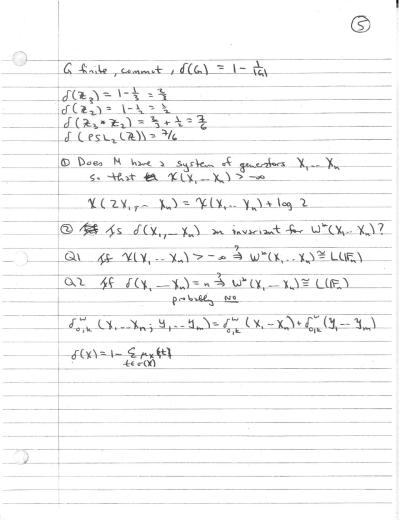 5
G finite, commut, δ(G) = 1 - 1/|G|
δ(Z₃) = 1 - 1/3 = 2/3
δ(Z₂) = 1 - 1/2 = 1/2
δ(Z₃ * Z₂) = 2/3 + 1/2 = 7/6
δ(PSL₂(Z)) = 7/6
① Does M have a system of generators X₁ ... Xₙ
so that χ(X₁ ... Xₙ) > -∞
χ(2X₁, ... Xₙ) = χ(X₁ ... Xₙ) + log 2
② Is δ(X₁, ... Xₙ) an invariant for W*(X₁ ... Xₙ)?
Q1 If χ(X₁ ... Xₙ) > -∞ ⇒? W*(X₁ ... Xₙ) ≅ L(Fₙ)
Q2 If δ(X₁ ... Xₙ) = n ⇒? W*(X₁ ... Xₙ) ≅ L(Fₙ)
probably No
(X₁ ... Xₙ; Y₁ ... Yₘ) = (X₁ ... Xₙ) + (Y₁ ... Yₘ)
δ(X) = 1 - Σ μₓ{t}
t∈σ(X)